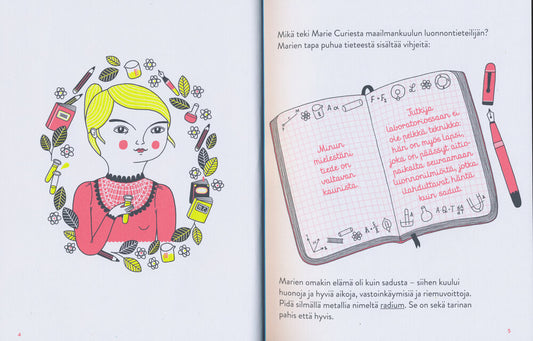 Mikä teki Marie Curiesta maailmankuulun luonnontieteilijän?
Marien tapa puhua tieteestä sisältää vihjeitä:
A α
F = F₂
L
Minun
mielestäni
tiede on
valtavan
kaunista.
Tutkija
laboratoriossaan ei
ole pelkkä teknikko:
hän on myös lapsi,
joka on päässyt aitio-
paikalta seuraamaan
luonnonilmiöitä, jotka
ilahduttavat häntä
kuin sadut.
A·Q-T
Marien omakin elämä oli kuin sadusta – siihen kuului
huonoja ja hyviä aikoja, vastoinkäymisiä ja riemuvoittoja.
Pidä silmällä metallia nimeltä radium. Se on sekä tarinan
pahis että hyvis.
4
5